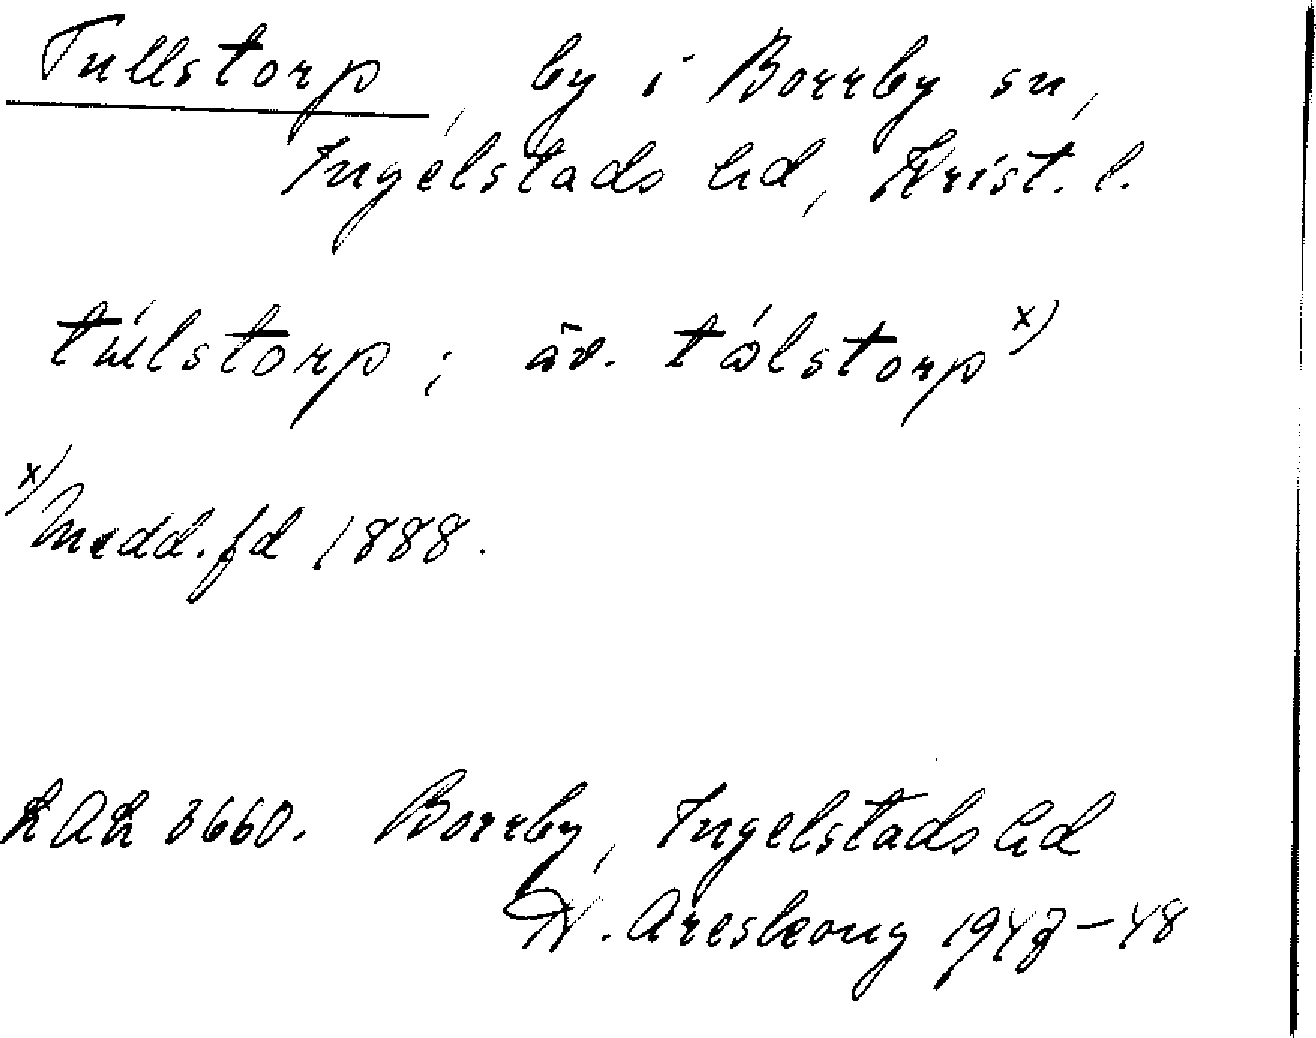 Tullstorp, by i Borrby sn,
Ingelstads hd, Krist. l.
túlstorp; äv. tólstorp x)
x) Medd. fd 1888.
LAL 3660. Borrby, Ingelstads hd
H. Areskoug 1947-48